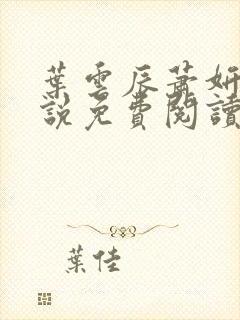 葉雲辰蕭妍
說免費閱讀
葉佳